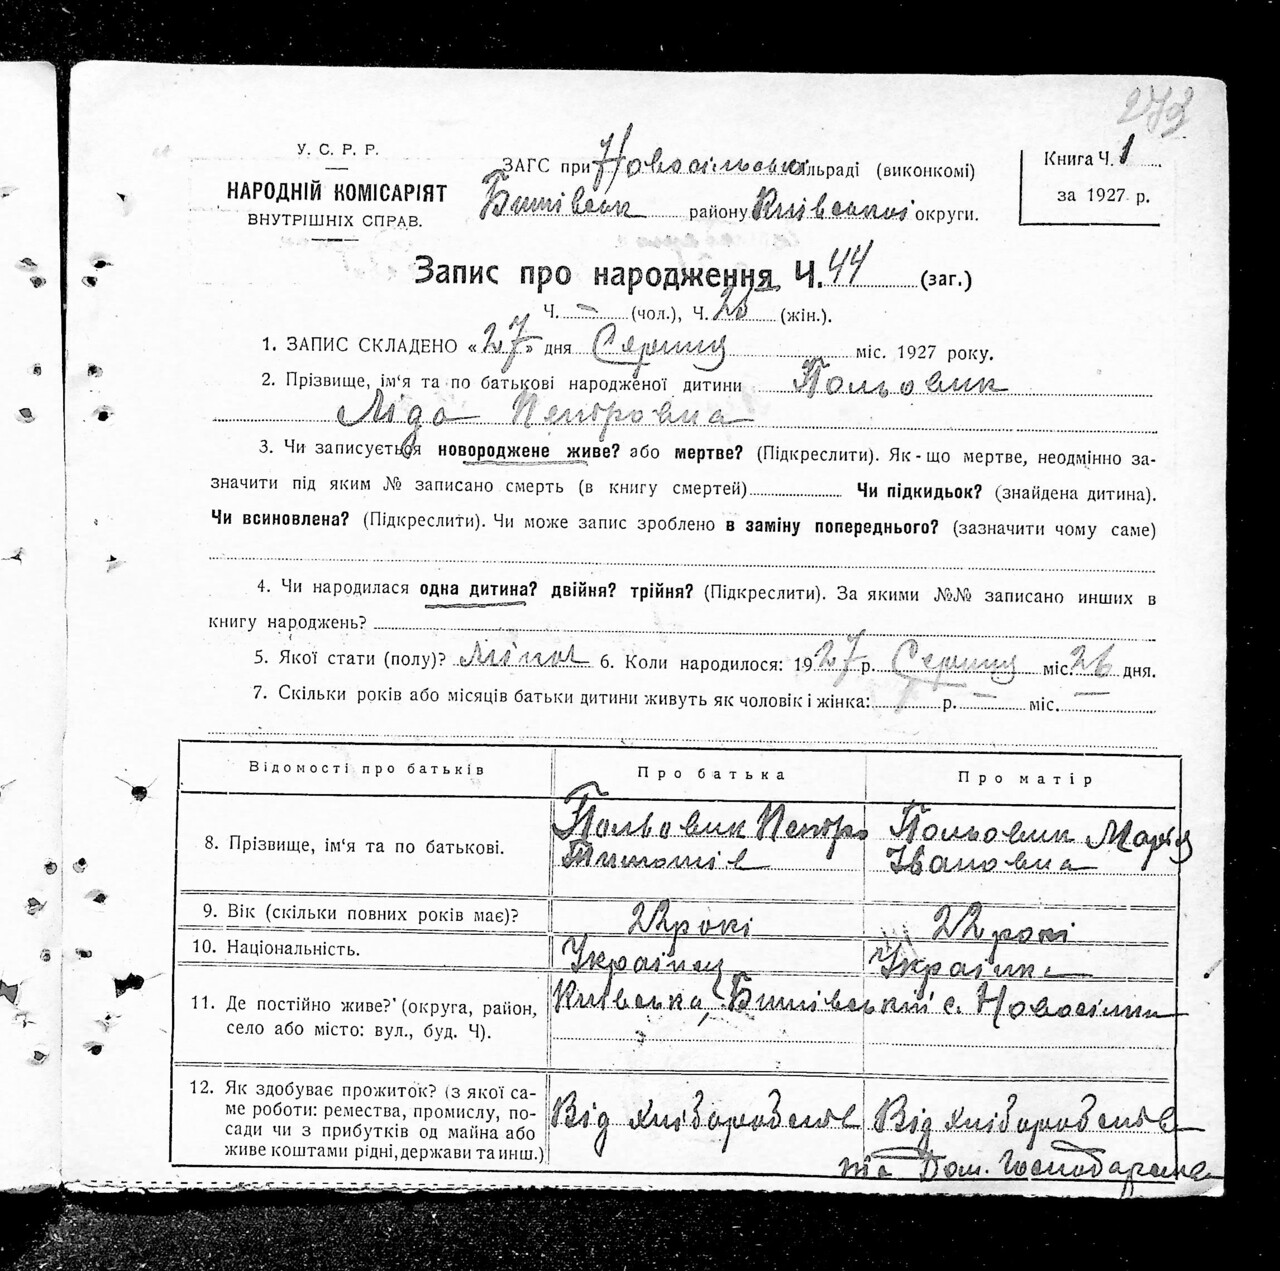 273
У. С. Р. Р.
НАРОДНІЙ КОМІСАРІЯТ
ВНУТРІШНІХ СПРАВ.
ЗАГС при Новосільській сільраді (виконкомі)
Бишівськ району Київської округи.
Книга Ч. 1
за 1927 р.
Запис про народження Ч. 44 (заг.)
Ч. – (чол.), Ч. 28 (жін.).
1. ЗАПИС СКЛАДЕНО «27» дня Серпня міс. 1927 року.
2. Прізвище, ім'я та по батькові народженої дитини Польовик
Ліда Петровна
3. Чи записується новороджене живе? або мертве? (Підкреслити). Як-що мертве, неодмінно за-
значити під яким № записано смерть (в книгу смертей) Чи підкидьок? (знайдена дитина).
Чи всиновлена? (Підкреслити). Чи може запис зроблено в заміну попереднього? (зазначити чому саме)
4. Чи народилася одна дитина? двійня? трійня? (Підкреслити). За якими №№ записано инших в
книгу народжень?
5. Якої стати (полу)? жіноч 6. Коли народилося: 1927 р. Серпня міс. 26 дня.
7. Скільки років або місяців батьки дитини живуть як чоловік і жінка: р. – міс.
Відомості про батьків Про батька Про матір
8. Прізвище, ім'я та по батькові. Польовик Петро Польовик Марія
Івановна
9. Вік (скільки повних років має)? 22 рокі 22 рокі
10. Національність. Українц Українка
11. Де постійно живе? (округа, район, Київська, Бишівський с. Новосілки
село або місто: вул., буд. Ч).
12. Як здобуває прожиток? (з якої са-
ме роботи: ремества, промислу, по- Від хліборобств Від хліборобств
сади чи з прибутків од майна або
живе коштами рідні, держави та инш.) та Дом. Господарства